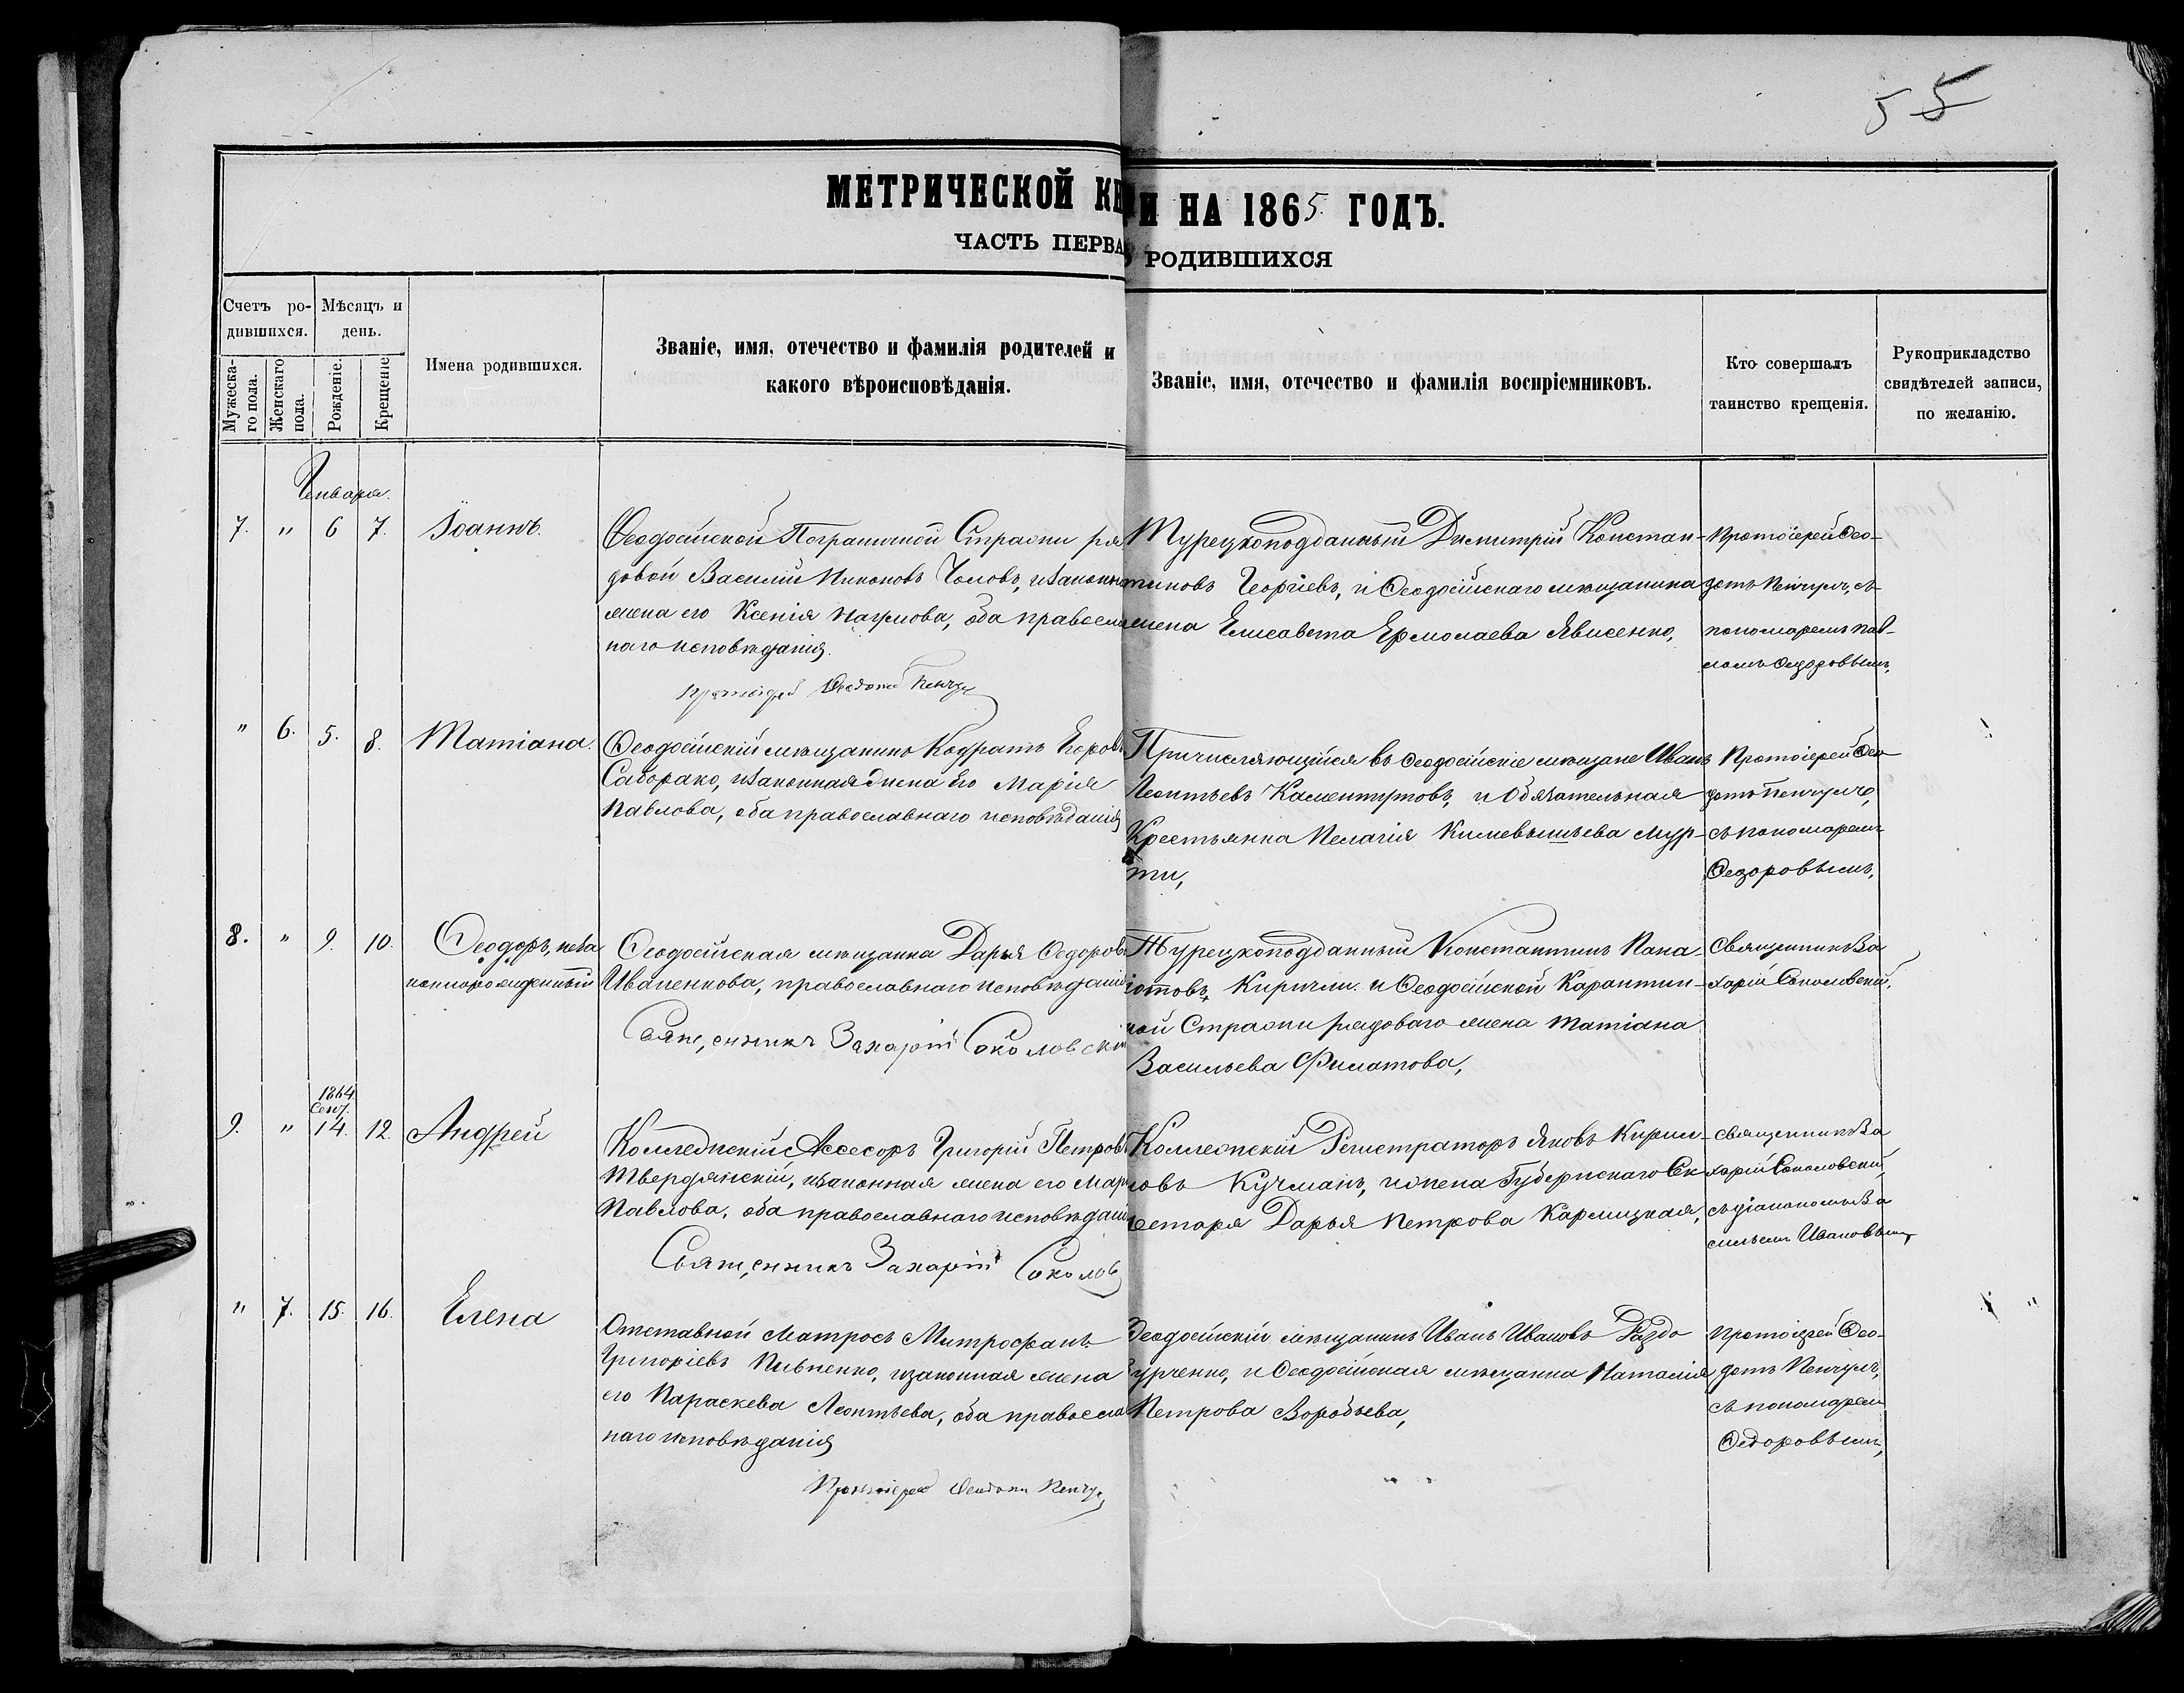 55
МЕТРИЧЕСКОЙ КН И НА 1865 ГОДЪ.
ЧАСТЬ ПЕРВА РОДИВШИХСЯ
Счетъ ро-
дившихся.
Мѣсяцъ и
день.
Мужеска-
го пола.
Женскаго
пола.
Рожденіе.
Крещеніе
Имена родившихся.
Званіе, имя, отечество и фамилія родителей и
какого вѣроисповѣданія.
Званіе, имя, отечество и фамилія воспріемниковъ.
Кто совершалъ
таинство крещенія.
Рукоприкладство
свидѣтелей записи,
по желанію.
Генваря.
7. " 6 7. Іоаннъ.
Ѳеодосійской Пограничной Стражи ря
довой Василій Никоновъ Чомовъ, изаконна
жена его Ксенія Наумова, оба правосла
наго исповѣданія.
Протоіерей Ѳеодотъ Пенчул
Турецкоподданный Димитрій Констан-
тиновъ Георгіевъ, и Ѳеодосійскаго мѣщанина
жена Елисавета Ермолаева Явисенко,
Протоіерей Ѳео-
дотъ Пенчулъ, съ
пономаремъ Пав-
ломъ Ѳедоровымъ,
" 6. 5. 8. Татіана.
Ѳеодосійскій мѣщанинъ Кодратъ Егоровъ
Саборако, изаконная жена Его Марія
Павлова, оба православнаго исповѣданія
Причисляющійся въ Ѳеодосійскіе мѣщане Иванъ
Леонтьевъ Калентутовъ, и Обязательная
Крестьянка Пелагія мур-
ти,
Протоіерей Ѳео
дотъ Пенчулъ,
съ пономаремъ
Ѳедоровымъ,
8. " 9. 10. Ѳеодоръ, неза
коннорожденный
Ѳеодосійская мѣщанка Дарья Ѳедорова
Иваненкова, православнаго исповѣданія
Священникъ Захарій Соколовскій
Турецкоподданный Константинъ Пана-
іотовъ, Киригли и Ѳеодосійской Карантин-
ной Стражи рядоваго жена Татіана
Васильева Филатова,
Священникъ За
харій Соколовскій,
1864
Сент.
9. " 14. 12. Андрей
Коллежскій Ассесоръ Григорій Петровъ
Твердянскій, изаконная жена его Мар
Павлова, оба православнаго исповѣдан
Священникъ Захарій Соколов
Коллежскій Регистраторъ Яковъ Кирил-
ловъ Кучманъ, и жена Губернскаго Сек
ретаря Дарья Петрова Кармицкая,
Священникъ За
харій Соколовскій,
съ діакономъ Ва
сильемъ Ивановымъ,
" 7. 15. 16. Елена
Отставной Матросъ Митрофанъ
Григоріевъ Пивненко, изаконная жена
его Параскева Леонтьева, оба правосла
наго исповѣданія
Протоіерей Ѳеодотъ Пенчул
Ѳеодосійскій мѣщанинъ Иванъ Ивановъ Раздо
бурченко, и Ѳеодосійская мѣщанка Наталія
Петрова Воробьева,
Протоіерей Ѳео-
дотъ Пенчулъ,
съ пономарем
Ѳедоровымъ,